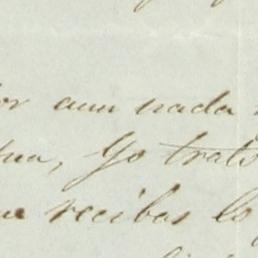 or aun nada
tua, Yo trato
ue recibas lo